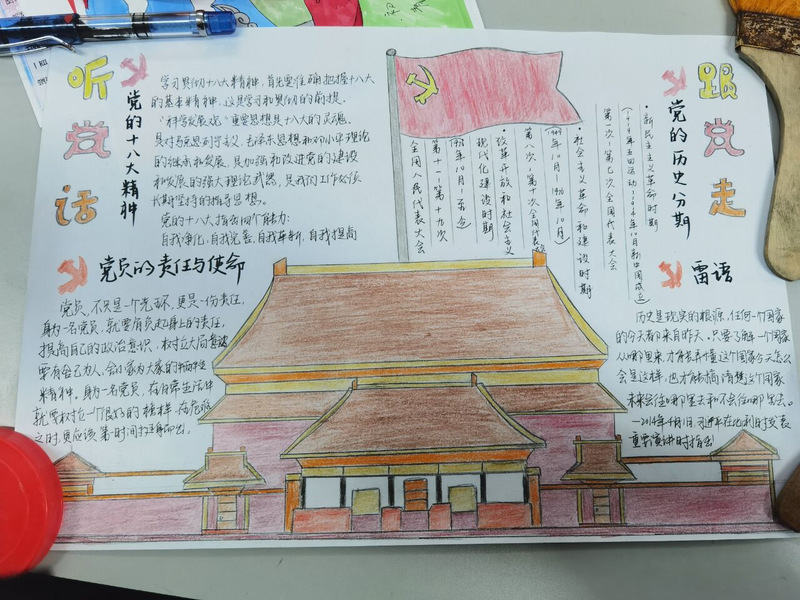 听党话
党的十八大精神
学习贯彻十八大精神，首先要准确把握十八大
的基本精神，这是学习和贯彻的前提。
"科学发展观"重要思想是十八大的灵魂，
是对马克思列宁主义、毛泽东思想和邓小平理论
的继承和发展，是加强和改进党的建设
和发展的强大理论武器，是我们工作必须
长期坚持的指导思想。
党的十八大指出四个能力：
自我净化，自我完善，自我革新，自我提高
党员的责任与使命
党员，不只是一个光环，更是一份责任，
身为一名党员，就要肩负起身上的责任，
提高自己的政治意识，树立大局意识
要有舍己为人，舍小家为大家的牺牲
精神。身为一名党员，在日常生活中
就要树立一个很好的榜样，在危难
之时，更应该第一时间挺身而出。
跟党走
党的历史分期
·新民主主义革命时期
第一次-第七次全国代表大会
·社会主义革命和建设时期
(1949年10月-1976年10月)
第八次-第十次全国代表
·改革开放和社会主义
现代化建设时期
1978年10月-至今
第十一-第十九次
全国人民代表大会
雷语
历史是现实的根源，任何一个国家
的今天都来自昨天。只要了解一个国家
从哪里来，才能弄懂这个国家今天怎么
会是这样，也才能搞清楚这个国家
未来会往哪里去和不会往哪里去。
—2014年4月1日，习近平在比利时发表
重要演讲时指出